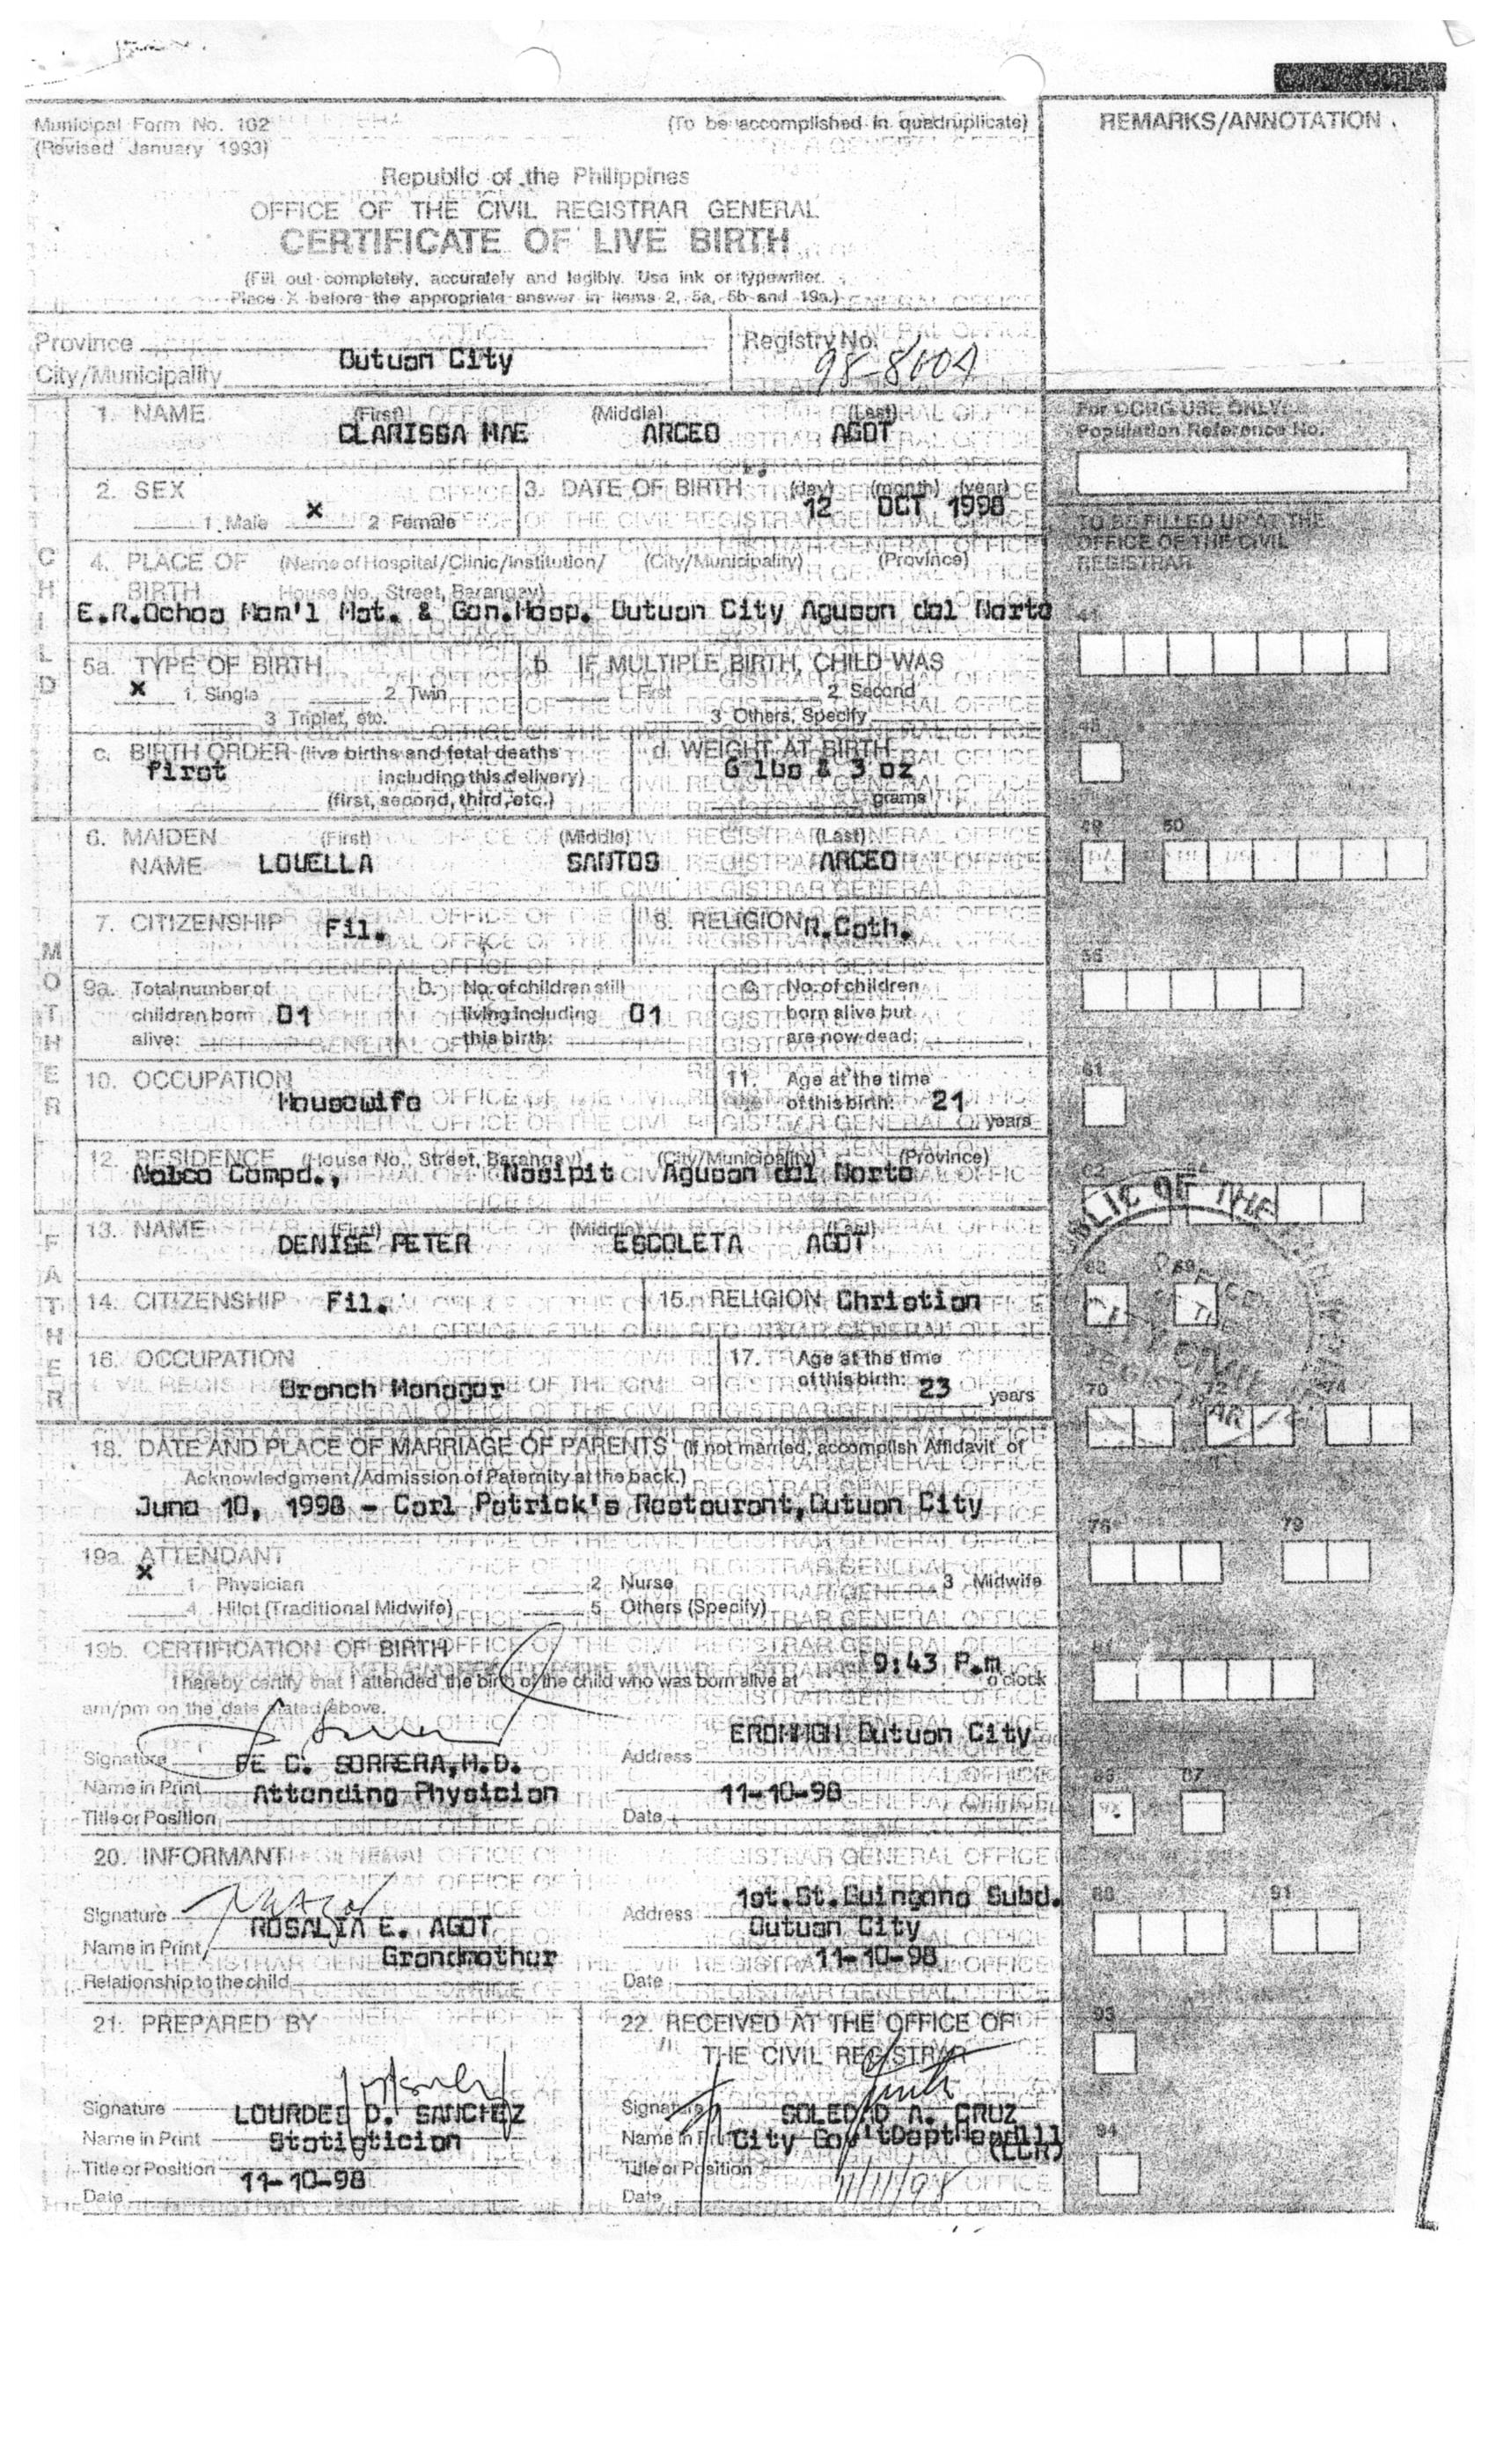 Municipal Form No. 102
(Revised January 1993)
(To be accomplished in quadruplicate)
REMARKS/ANNOTATION
Republic of the Philippines
OFFICE OF THE CIVIL REGISTRAR GENERAL
CERTIFICATE OF LIVE BIRTH
(Fill out completely, accurately and legibly. Use ink or typewriter.
Place X before the appropriate answer in items 2, 5a, 5b and 19a.)
Province
City/Municipality Butuan City
Registry No.
1. NAME (First) (Middle) (Last)
CLARISSA MAE ARCEO AGOT
For OCRG USE ONLY:
Population Reference No.
2. SEX
1. Male X 2 Female
3. DATE OF BIRTH (day) (month) (year)
12 OCT 1998
TO BE FILLED UP AT THE
OFFICE OF THE CIVIL
REGISTRAR
CHILD
4. PLACE OF BIRTH (Name of Hospital/Clinic/Institution/ (City/Municipality) (Province)
House No., Street, Barangay)
E.R.Ochoa Mem'l Mat. & Gen.Hosp. Butuan City Agusan del Norte
41
5a. TYPE OF BIRTH
X 1. Single 2 Twin
3 Triplet, etc.
b. IF MULTIPLE BIRTH, CHILD WAS
1. First 2 Second
3 Others, Specify
c. BIRTH ORDER (live births and fetal deaths
first including this delivery)
(first, second, third, etc.)
d. WEIGHT AT BIRTH
6 lbs & 3 oz
grams
49 50
6. MAIDEN NAME (First) (Middle) (Last)
LOUELLA SANTOS ARCEO
MOTHER
7. CITIZENSHIP Fil.
8. RELIGION R.Cath.
56
9a. Total number of
children born 01
alive:
b. No. of children still
living including 01
this birth:
c. No. of children
born alive but
are now dead:
10. OCCUPATION
Housewife
11. Age at the time
of this birth: 21
years
61
12. RESIDENCE (House No., Street, Barangay) (City/Municipality) (Province)
Nalco Compd., Nasipit Agusan del Norte
62 64
FATHER
13. NAME (First) (Middle) (Last)
DENISE PETER ESCOLETA AGOT
14. CITIZENSHIP Fil.
15. RELIGION Christian
69
16. OCCUPATION
Branch Manager
17. Age at the time
of this birth: 23
years
70 72 74
18. DATE AND PLACE OF MARRIAGE OF PARENTS (If not married, accomplish Affidavit of
Acknowledgment/Admission of Paternity at the back.)
June 10, 1998 - Carl Patrick's Restaurant,Butuan City
76 79
19a. ATTENDANT
X 1 Physician 2 Nurse 3 Midwife
4 Hilot (Traditional Midwife) 5 Others (Specify)
19b. CERTIFICATION OF BIRTH
I hereby certify that I attended the birth of the child who was born alive at 9:43 P.m o'clock
am/pm on the date stated above.
81
Signature
Name in Print FE C. SORRERA,M.D.
Title or Position Attending Physician
Address EROMMGH Butuan City
Date 11-10-98
86 87
20. INFORMANT
Signature
Name in Print ROSALIA E. AGOT
Relationship to the child Grandmother
Address 1st.St.Guingona Subd.
Butuan City
Date 11-10-98
88 91
21. PREPARED BY
Signature
Name in Print LOURDES D. SANCHEZ
Title or Position Statistician
Date 11-10-98
22. RECEIVED AT THE OFFICE OF
THE CIVIL REGISTRAR
Signature
Name in Print SOLEDAD A. CRUZ
Title or Position City Gov'tDeptHead
(LCR)
Date 11/11/98
93
94